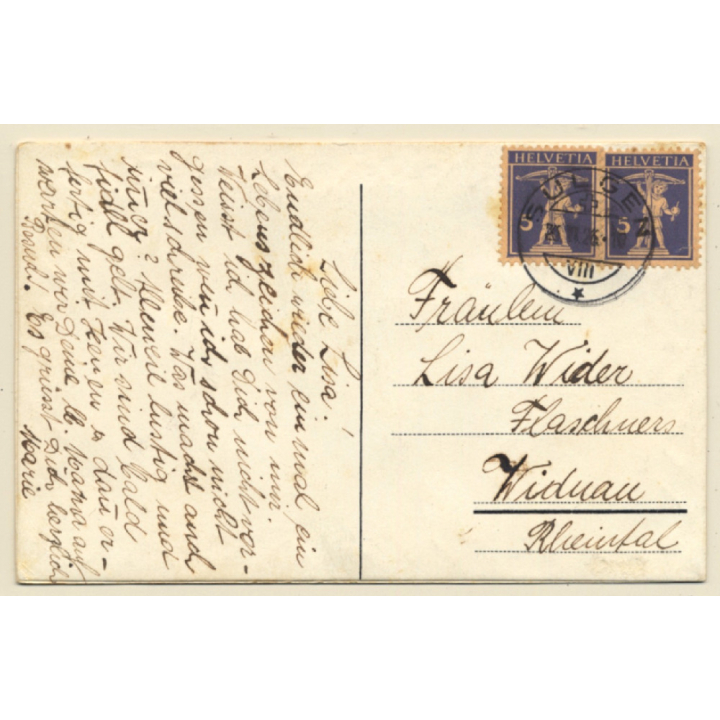 Liebe Lisa!
Endlich wieder einmal ein
Lebenszeichen von mir.
Weisst ich hab Dich nicht ver-
gessen wen ich schon nicht
viel schreibe. Was macht auch
jüng? Alleweil lustig und
fidel gelt. Wir sind bald
fertig mit Heuen & dan er-
warten wir Deine lb. Mama auf
Besuch. Es grüsst Dich herzlich
Marie
HELVETIA
5
HELVETIA
5
SULGEN
VIII
Fräulein
Lisa Wider
Flaschners
Widnau
Rheintal